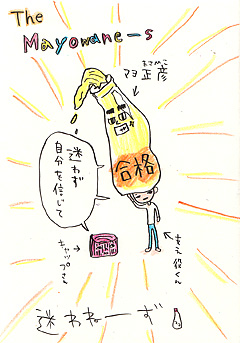 The
Mayowane-s
まさひこ
マヨ正彦
迷わず
自分を信じて
合格
キャップさん
支え役くん
迷わねーず